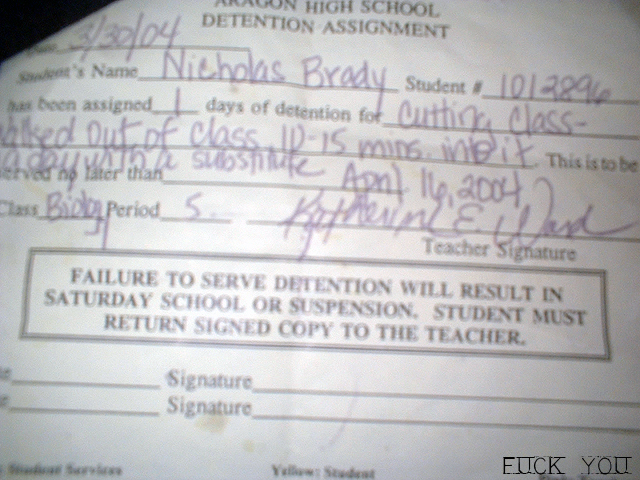 ARAGON HIGH SCHOOL
DETENTION ASSIGNMENT
Date 3/30/04
Student's Name Nicholas Brady Student # 1012896
has been assigned 1 days of detention for Cutting Class-
walked out of class 10-15 mins. into it. This is to be
a day with a substitute
served no later than April 16, 2004
Class Biology Period 5. Katherine E. Ward
Teacher Signature
FAILURE TO SERVE DETENTION WILL RESULT IN
SATURDAY SCHOOL OR SUSPENSION. STUDENT MUST
RETURN SIGNED COPY TO THE TEACHER.
Signature
Signature
Student Services Yellow: Student
FUCK YOU